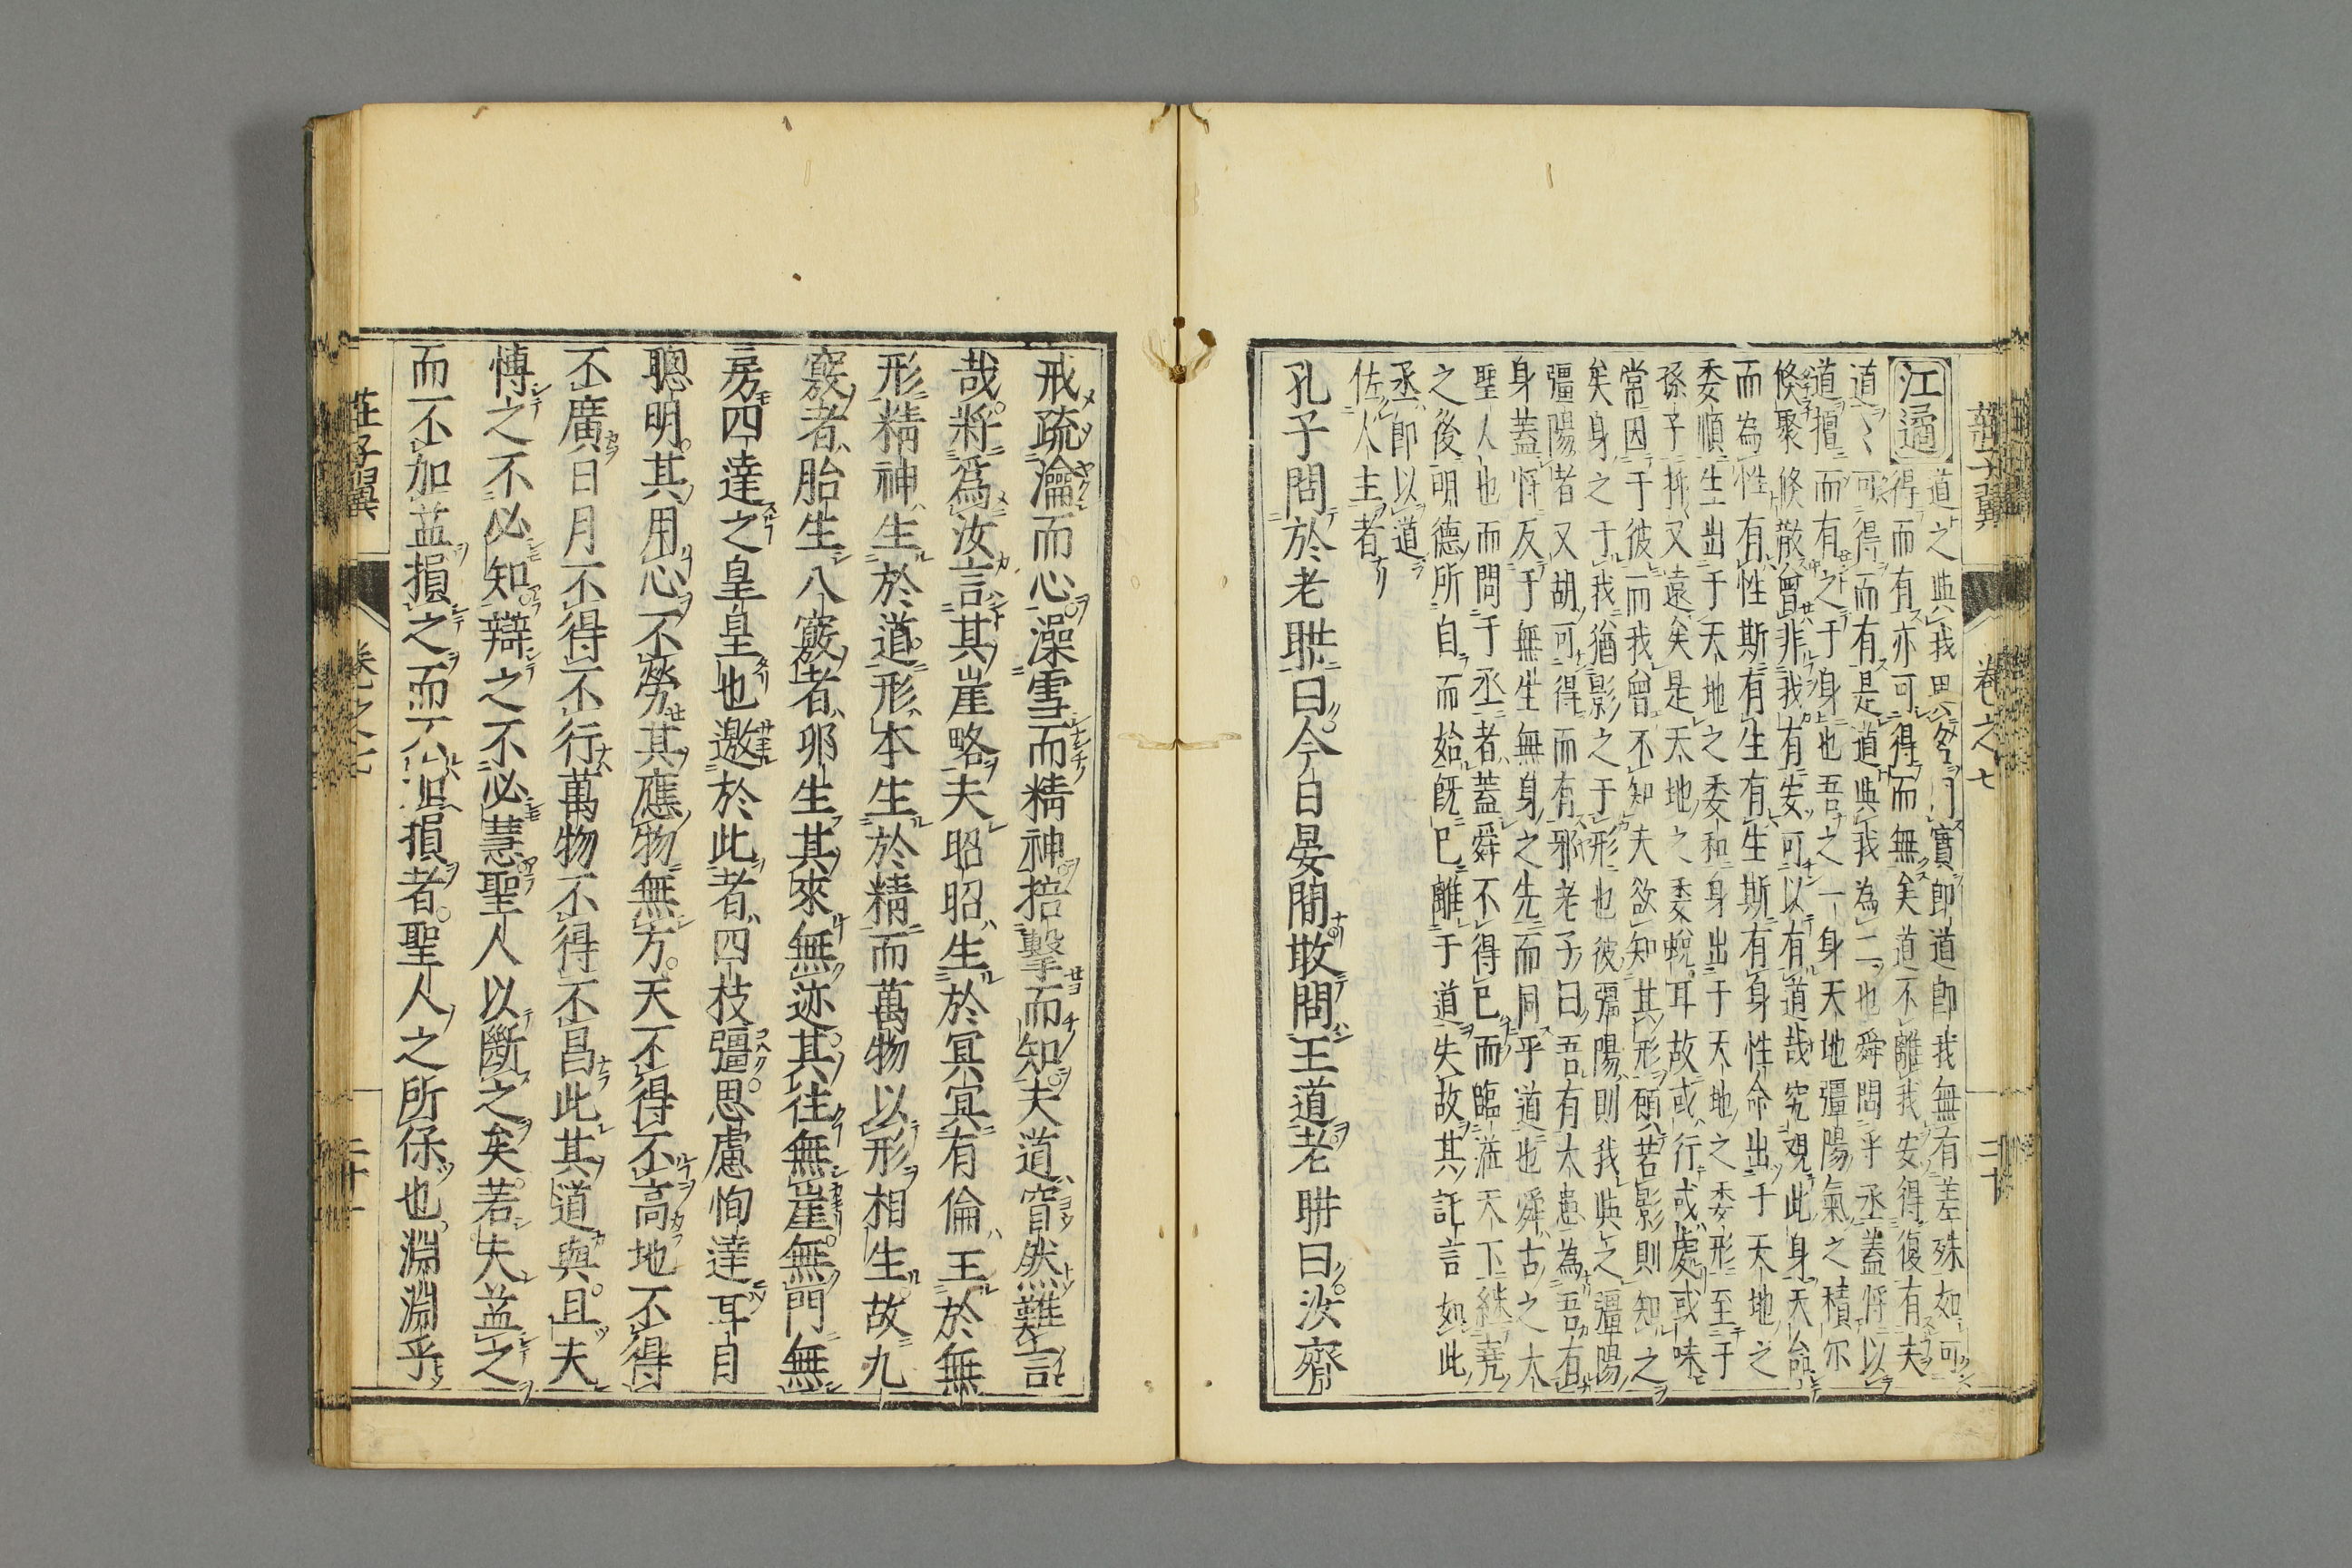 莊子翼 卷之七 二十
江遹 道之與我異名同實即道即我無有差殊如可
得而有亦可得而無矣道不離我安得復有夫
道〻可得而有是道與我為二也舜問乎丞蓋將以
道擅而有之于身也吾之一身天地彊陽氣之積尔
倏聚倏散曾非我有安可以有道哉究觀此身天命
而為性有性斯有生有生斯有身性命出于天地之
委順生出于天地之委和身出于天地之委形至于
孫子抑又遠矣是天地之委蛻耳故或行或處或味
常因于彼而我曾不知夫欲知其形顧若影則知之
矣身之于我猶影之于形也彼彊陽則我與之彊陽
彊陽者又胡可得而有邪老子曰吾有大患為吾有
身蓋將反于無生無身之先而同乎道也舜古之大
聖人也而問于丞者蓋舜不得已而臨蒞天下繼堯
之後明德所自而始既已離于道矣故其託言如此
丞即以道
佐人主者
孔子問於老耼曰今日晏閒敢問至道老耼曰汝齊
戒疏瀹而心澡雪而精神掊擊而知夫道窅然難言
哉將爲汝言其崖略夫昭昭生於冥冥有倫生於無
形精神生於道形本生於精而萬物以形相生故九
竅者胎生八竅者卵生其來無迹其往無崖無門無
房四達之皇皇也邀於此者四枝彊思慮恂達耳目
聰明其用心不勞其應物無方天不得不高地不得
不廣日月不得不行萬物不得不昌此其道與且夫
博之不必知辯之不必慧聖人以斷之矣若夫益之
而不加益損之而不加損者聖人之所保也淵淵乎
莊子翼 卷之七 二十一